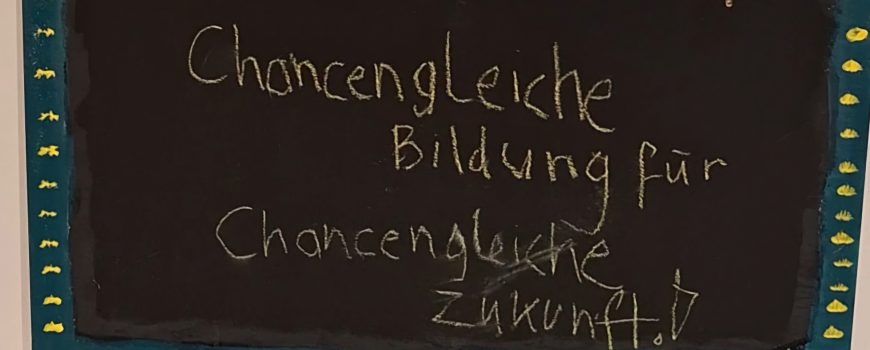 Chancengleiche
Bildung für
Chancengleiche
Zukunft.!